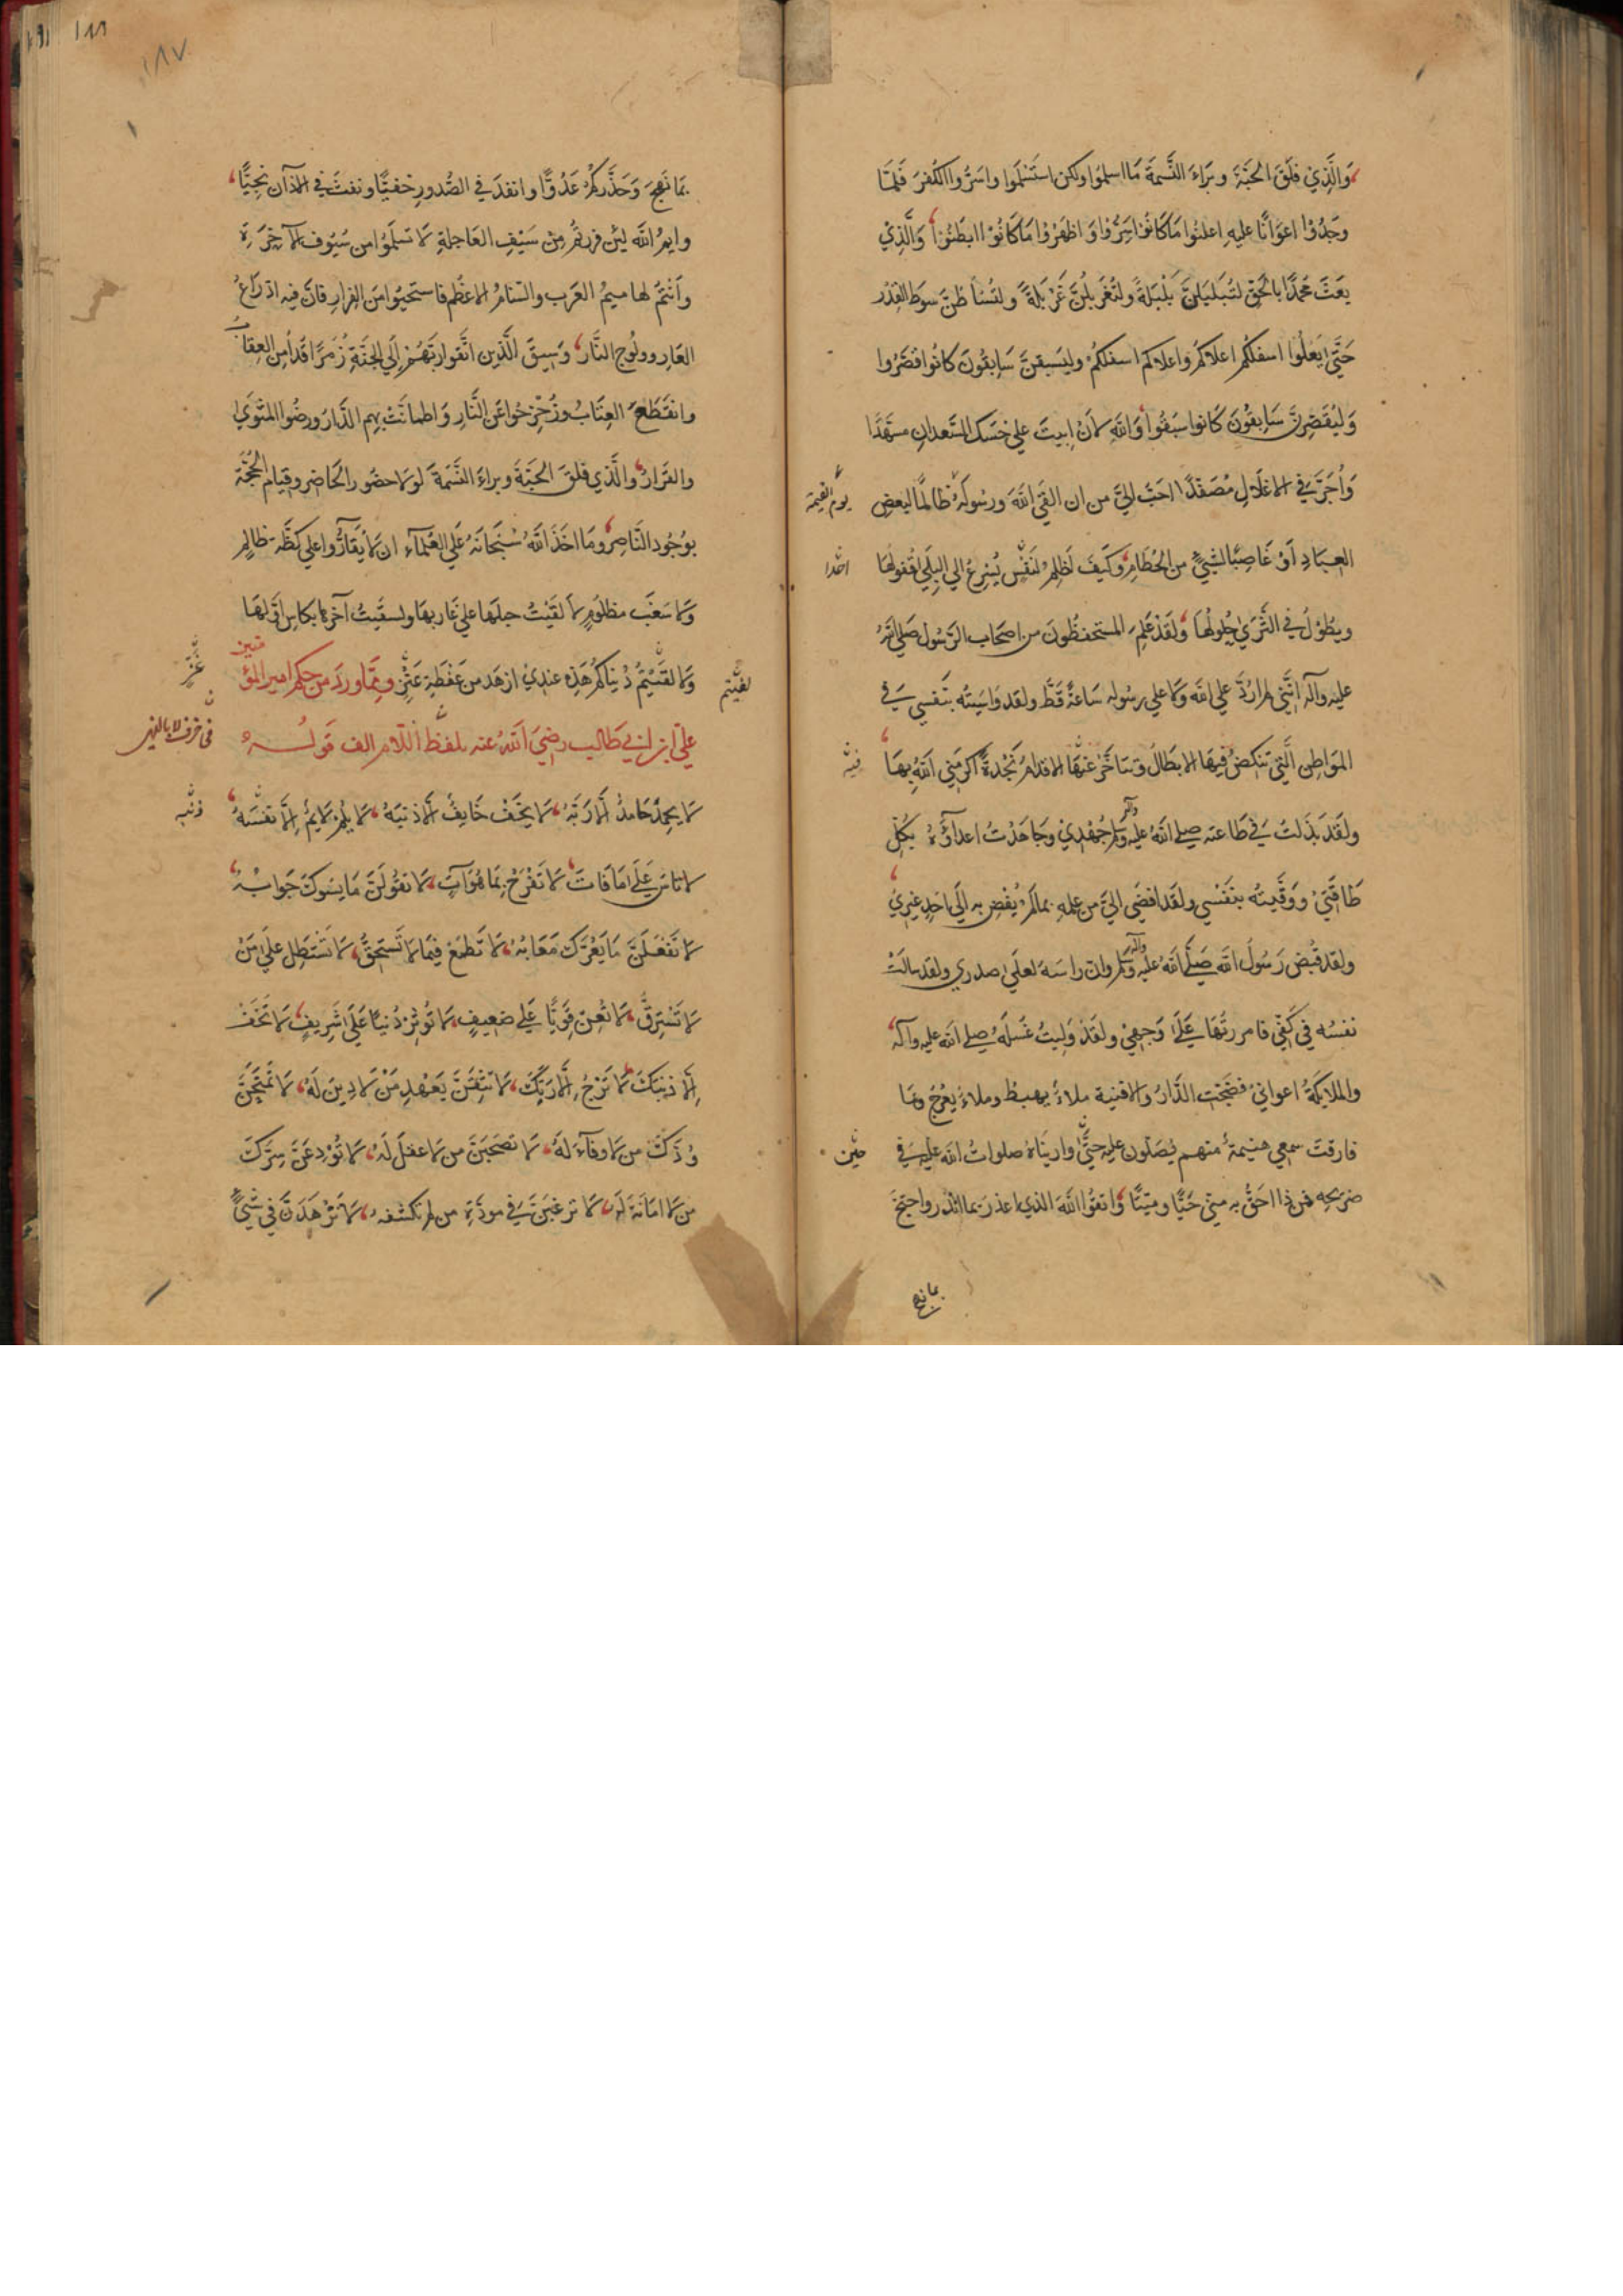 وَالَّذِي فَلَقَ الحَبَّةَ وبَرَاءَ النَّسَمَةَ مَا اسلموا ولكن استَسْلَموا واسَرُّوا الكُفْرَ فَلَمَّا
وَجَدُوْا اعوَانًا عليهِ اعلنُوا مَا كَانُوْا اسَرُّوْا وَ اظهَرُوْا مَا كَانُوْا ابطَنُوْا وَالَّذِيْ
بعَثَ مُحَمَّدًا بالحَقِّ لتُبَلبَلُنَّ بَلْبَلَةً ولتُغَربلُنَّ غَرْبَلَةً ولتُسَاطُنَّ سوط القِدْر
حَتَّى يَعلُوا اسفلكُم اعلاكُم واعلاكم اسفلكُم وليَسبقنَّ سَابقُونَ كانُوا قصَّرُوا
وَليُقَصِّرنَّ سَابِقُوْنَ كَانوا سَبَقُوا وَاللهِ لانْ ابيتَ علي حَسَك السَّعدان مسَهَّدًا
وَأُجَرَّ في الاغلالِ مُصَفَّدًا احَبُّ اليَّ من ان القَي اللهَ ورسُولَهُ ظالمًا لبعضِ
يوم القيمة
العِبَادِ أوْ غَاصِبًا لشَيْءٍ من الحُطَامِ وَكَيفَ اَظلِمُ لنَفْسٍ يُسْرِعُ الي البِلَي قُفولُهَا
احدا
ويطُوْلُ في الثَّرَي حُلُولُهَا ولَقَدْ عَلِمَ المستحفظُونَ من اصحَاب الرَّسُول صَلي اللهُ
عليه وآله انَّنِي لم ارُدَّ علي الله وَلا علي رسُوله سَاعَةً قَطُّ ولقد وَاسَيتُه بنَفسِي في
المَواطِن الَّتِي تنكصُ فيهَا الابطَالُ وتتَاخَّرُ عَنهَا الاقدامُ نَجْدةً اكرمَنِي اللهُ بهَا
فيه
ولَقَدْ بَذلتُ في طَاعتهِ صلي اللهُ عليه وآله وسلم جُهْدِيْ وجَاهَدْتُ اعدآؤَهُ بكُلِّ
طَاقَتِي وَوَقَيتُهُ بنَفْسِي ولقَد افضَي اليَّ من علمِهِ بمَا لَمْ يُفْضِ به الَي احَدٍ غيرِيْ
ولقد قُبضَ رَسُولُ اللهِ صَلَّي اللهُ عليه وآله وسلم وان راسَهُ لعلَي صدرِي ولقد سَالَتْ
نفسُه في كَفِّي فامررتُهَا عَلَي وَجهِيْ ولقَدْ وَلِيتُ غَسلَهُ صلي الله عليه وآله
والملايكَةُ اعوانِي فضَجّت الدَّارُ والافنية ملاءٌ يهبطُ وملاءٌ يَعْرُجُ ومَا
فارقت سمعِي هَينمةٌ منهم يُصَلّون عليه حتَّي وارينَاهُ صلواتُ الله عليه في
حين
ضريحِه فمن ذا احَقُّ به منّي حَيًّا وميتًا واتقُوا اللهَ الذي اعذَرَ بمَا انْذَرَ واحتجَّ
بما نهج
١٨٧
١٨٨
بمَا نَهجَ وَحَذَّركُمْ عَدُوًّا وانفذَ في الصُّدورِ خفيًّا ونفثَ في الآذان نَجِيًّا
وايمُ اللهِ لئِن فررتُم مِن سَيْفِ العَاجلةِ لا تسلَمُوا من سُيُوف الآخِرَةِ
وَأنتُمْ لهاميمُ العَرَب والسّنامُ الاعظَم فاستحيُوا منَ الفِرارِ فانَّ فيه ادّراعَ
العَارِ وولُوج النَّار وَسِيقَ الَّذِين اتَّقَوا ربَّهُم إلَي الجَنَّةِ زُمَرًا قد أُمِن العِقَابُ
وانقَطَعَ العِتَابُ وزُحْزِحُوا عَن النَّارِ وَاطمانَّتْ بهم الدَّار ورضُوا المَثوَي
والقَرَارَ والَّذي فلقَ الحبَّةَ وبراءَ النَّسَمَةَ لولا حضُور الحَاضِر وقيام الحُجَّة
بوُجُود النَّاصِر ومَا اخَذَ اللهُ سُبْحَانَهُ عَلَي العُلمآء ان لا يُقَارُّوا علي كظَّةِ ظالمٍ
وَلا سَغَبِ مظلُومٍ لالقَيْتُ حبلَها علي غَاربهَا ولسقَيتُ آخرهَا بكاس اوَّلهَا
وَلالفَيْتُمْ دُنياكُمْ هَذِه عندِيْ ازهَد من عَفْطَةِ عَنْزٍ وممّا وردَ من حِكَم امير المؤمنين
لفيتم
عنز
علي ابن ابي طالب رضيَ اللهُ عنه بلفظ اللّام الف قولُه
في حرف لا بالنهي
لا يحمَدْ حَامدٌ الَّا رَبَّهُ لا يخَفْ خَايفٌ الَّا ذنبَهُ لا يلُمْ لايمٌ الَّا نَفْسَهُ
ذنبه
لا تاسَ عَلَي مَا فَاتَ لا تَفْرَحْ بمَا هُوَ آتٍ لا تقُولَنَّ مَا يسُوكَ جَوابُهُ
لا تَفْعَلَنَّ مَا يَعُرُّكَ مَعَابُهُ لا تَطمَعْ فيمَا لا تَسْتَحِقُّ لا تَسْتَطِل عَلَي مَنْ
لا تَسْتَرِقُّ لا تُعِنْ قَوِيًّا عَلَي ضعِيفٍ لا تُوثِرْ دُنيًّا عَلَي شَرِيفٍ لا تَخَفْ
إلَّا ذنبَكَ لا تَرْجُ إلَّا رَبَّكَ لا تَثِقَنَّ بعَهْدِ مَنْ لا دِينَ لَهُ لا تَمْنَحَنَّ
وُدَّكَ من لا وفآءَ لَهُ لا تصحَبَنَّ من لا عقلَ لَهُ لا تُوْدِعَنَّ سِرَّكَ
من لا امانَةَ لَهُ لا ترغبَنَّ في مودَّةِ من لم تكشفهُ لا تَزْهَدَنَّ في شَيْءٍ